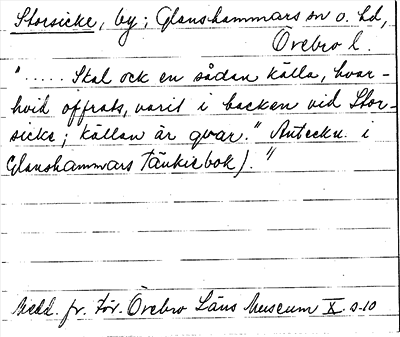 Storsicke, by; Glanshammars sn o. hd,
Örebro l.
"..... Skal ock en sådan källa, hvar-
hvid offrats, varit i backen vid Stor-
sicke; källan är qvar." Anteckn. i
Glanshammars Tänkiebok)."
Medd. fr. För. Örebro Läns Museum X s. 10